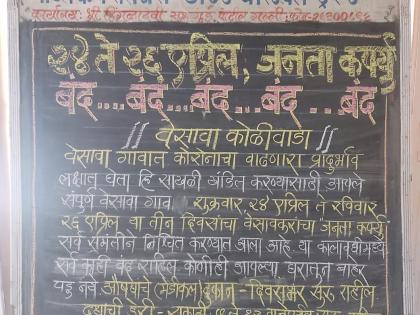 २४ ते २६ एप्रिल, जनता कर्फ्यु
बंद ... बंद ... बंद ... बंद ... बंद
// वेसावा कोळीवाडा //
वेसावा गावात कोरोनाचा वाढणारा प्रादुर्भाव
लक्षात घेता हि साखळी खंडित करण्यासाठी आपले
संपुर्ण वेसावा गाव शुक्रवार, २४ एप्रिल ते रविवार
२६ एप्रिल या तीन दिवसांचा वेसावकरांचा जनता कर्फ्यु
सर्व संमतीने निश्चित करण्यात आला आहे. या कालावधीमध्ये
सर्व काही बंद राहिल कोणीही आपल्या घरातून बाहेर
पडु नये औषधाचे (मेडीकल) दुकान - दिवसभर सुरु राहील